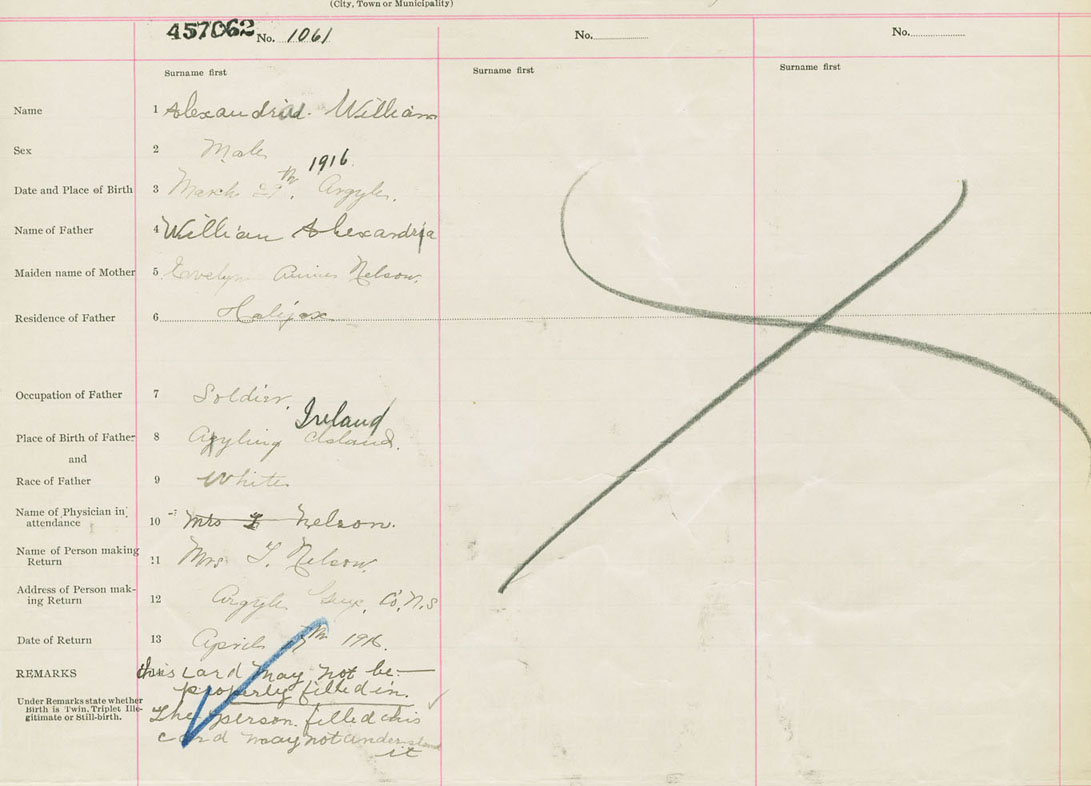 (City, Town or Municipality)
457062 No. 1061 No. No.
Surname first Surname first Surname first
Name 1 Alexandria. William
Sex 2 Male
1916
Date and Place of Birth 3 March th, Argyle.
Name of Father 4 William Alexandria
Maiden name of Mother 5 Evelyn Nelson.
Residence of Father 6 Halifax
Occupation of Father 7 Soldier.
Ireland
Place of Birth of Father 8 Island.
and
Race of Father 9 White
Name of Physician in attendance 10 Mrs Nelson.
Name of Person making Return 11 Mrs T. Nelson.
Address of Person mak-
ing Return 12 Argyle Guys. Co. N.S
Date of Return 13 April 7th 1916.
REMARKS this card may not be
properly filled in.
Under Remarks state whether
Birth is Twin, Triplet Ille-
gitimate or Still-birth.
The person filled this
card may not understand
it